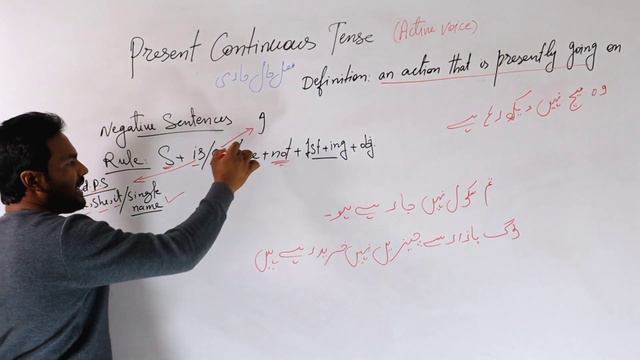 Present Continuous Tense (Active voice)
فعل حال جاری
Definition: an action that is presently going on
Negative Sentences
Rule: S + is/ + not + 1st + ing + obj
وہ میچ نہیں دیکھ رہا ہے
she, it/single
name
تم سکول نہیں جا رہے ہو۔
لوگ بازار سے چیزیں نہیں خرید رہے ہیں